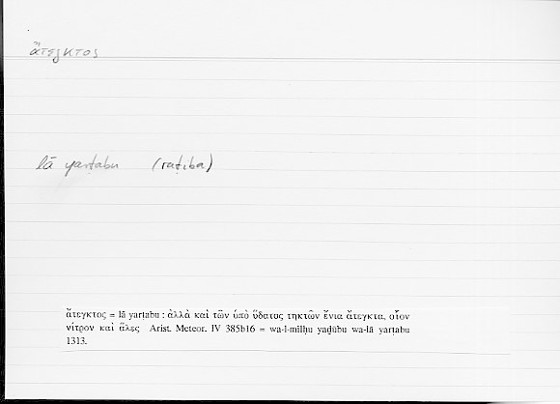 ἄτεγκτος
lā yarṭabu (raṭiba)
ἄτεγκτος = lā yarṭabu : ἀλλὰ καὶ τῶν ὑπὸ ὕδατος τηκτῶν ἔνια ἄτεγκτα, οἷον
νίτρον καὶ ἅλες Arist. Meteor. IV 385b16 = wa-l-milḥu yaḏūbu wa-lā yarṭabu
1313.